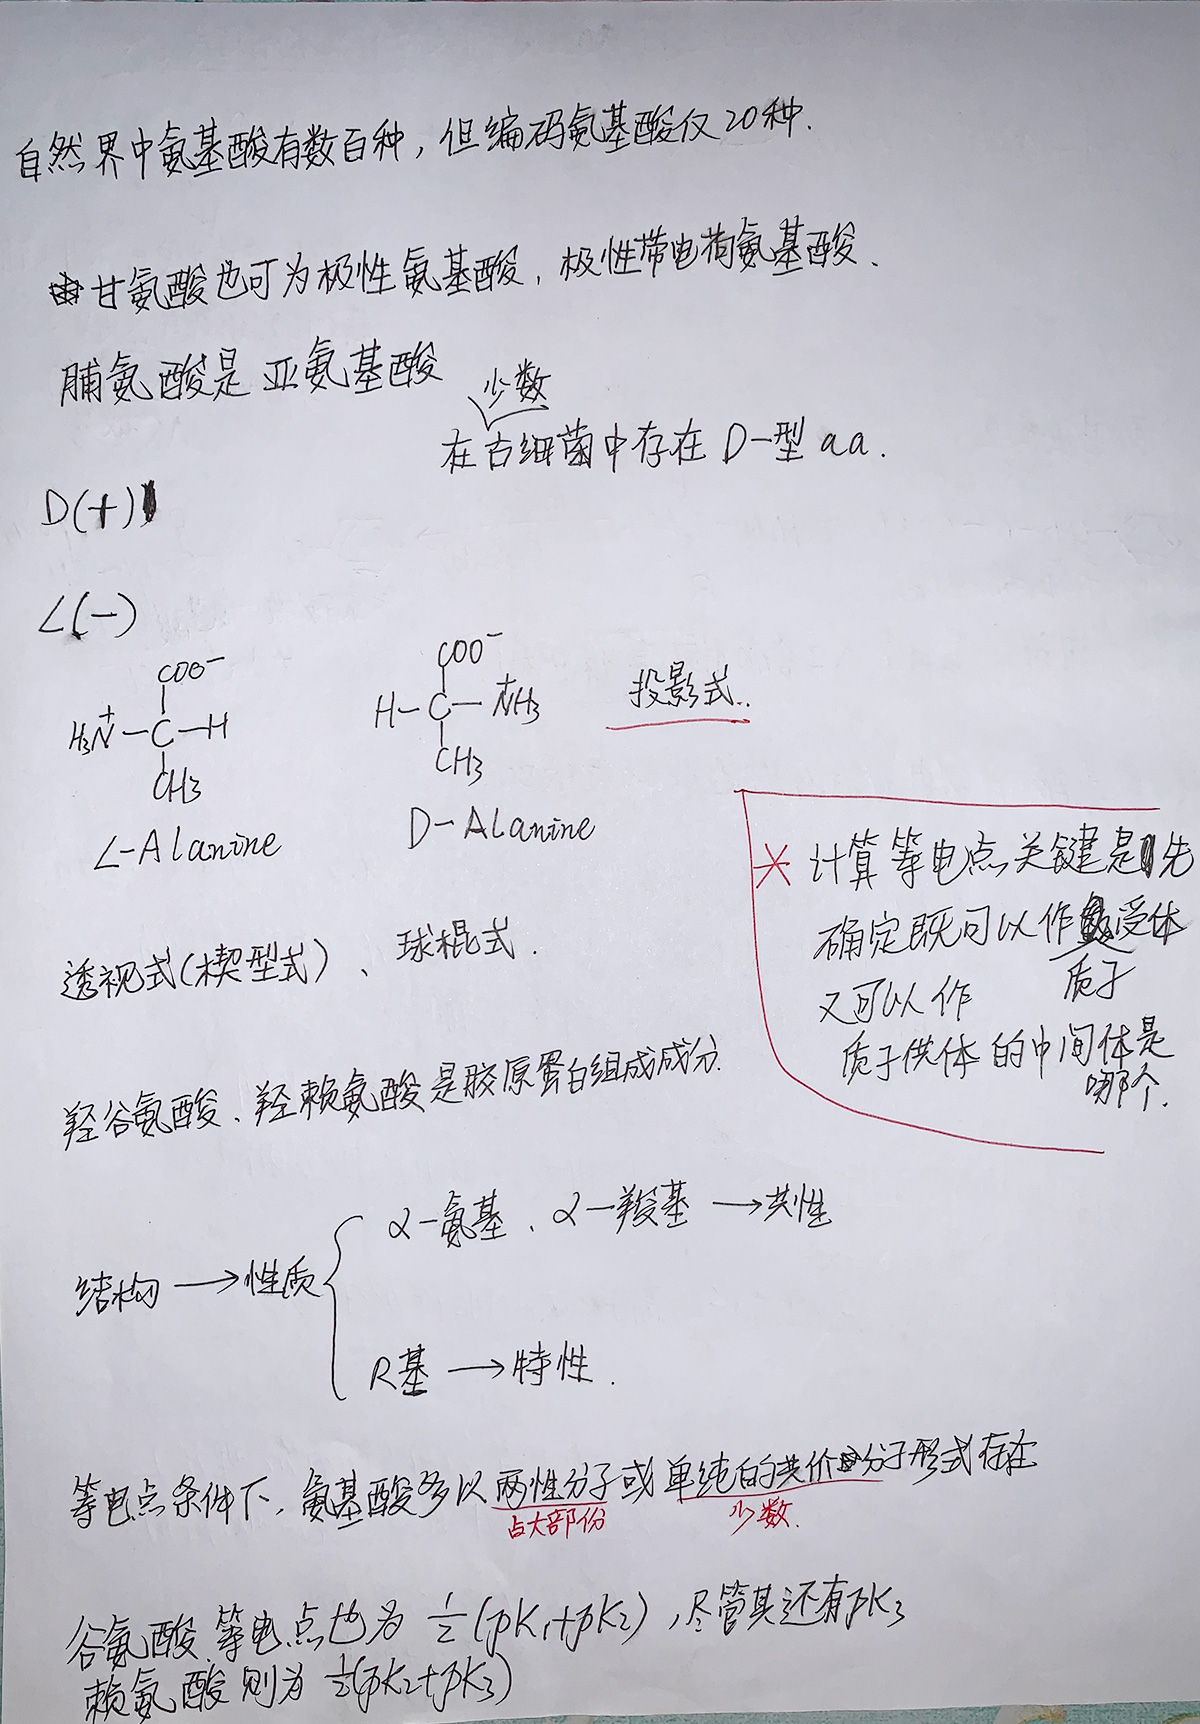 自然界中氨基酸有数百种，但编码氨基酸仅20种.
甘氨酸也可为极性氨基酸，极性带电荷氨基酸、
脯氨酸是亚氨基酸
少数
在古细菌中存在D-型aa.
D(+)
L(-)
COO⁻
H₃N⁺—C—H
CH₃
L-Alanine
COO⁻
H—C—N⁺H₃
CH₃
D-Alanine
投影式..
* 计算等电点关键是先
确定既可以作受体
质子
又可以作
质子供体的中间体是
哪个.
透视式(楔型式)、球棍式.
羟谷氨酸、羟赖氨酸是胶原蛋白组成成分.
α-氨基、α-羧基→共性
结构→性质
R基→特性.
等电点条件下，氨基酸多以两性分子或单纯的共价分子形式存在
占大部份 少数.
谷氨酸等电点也为½(pK₁+pK₂)，尽管其还有pK₃
赖氨酸则为½(pK₂+pK₃)